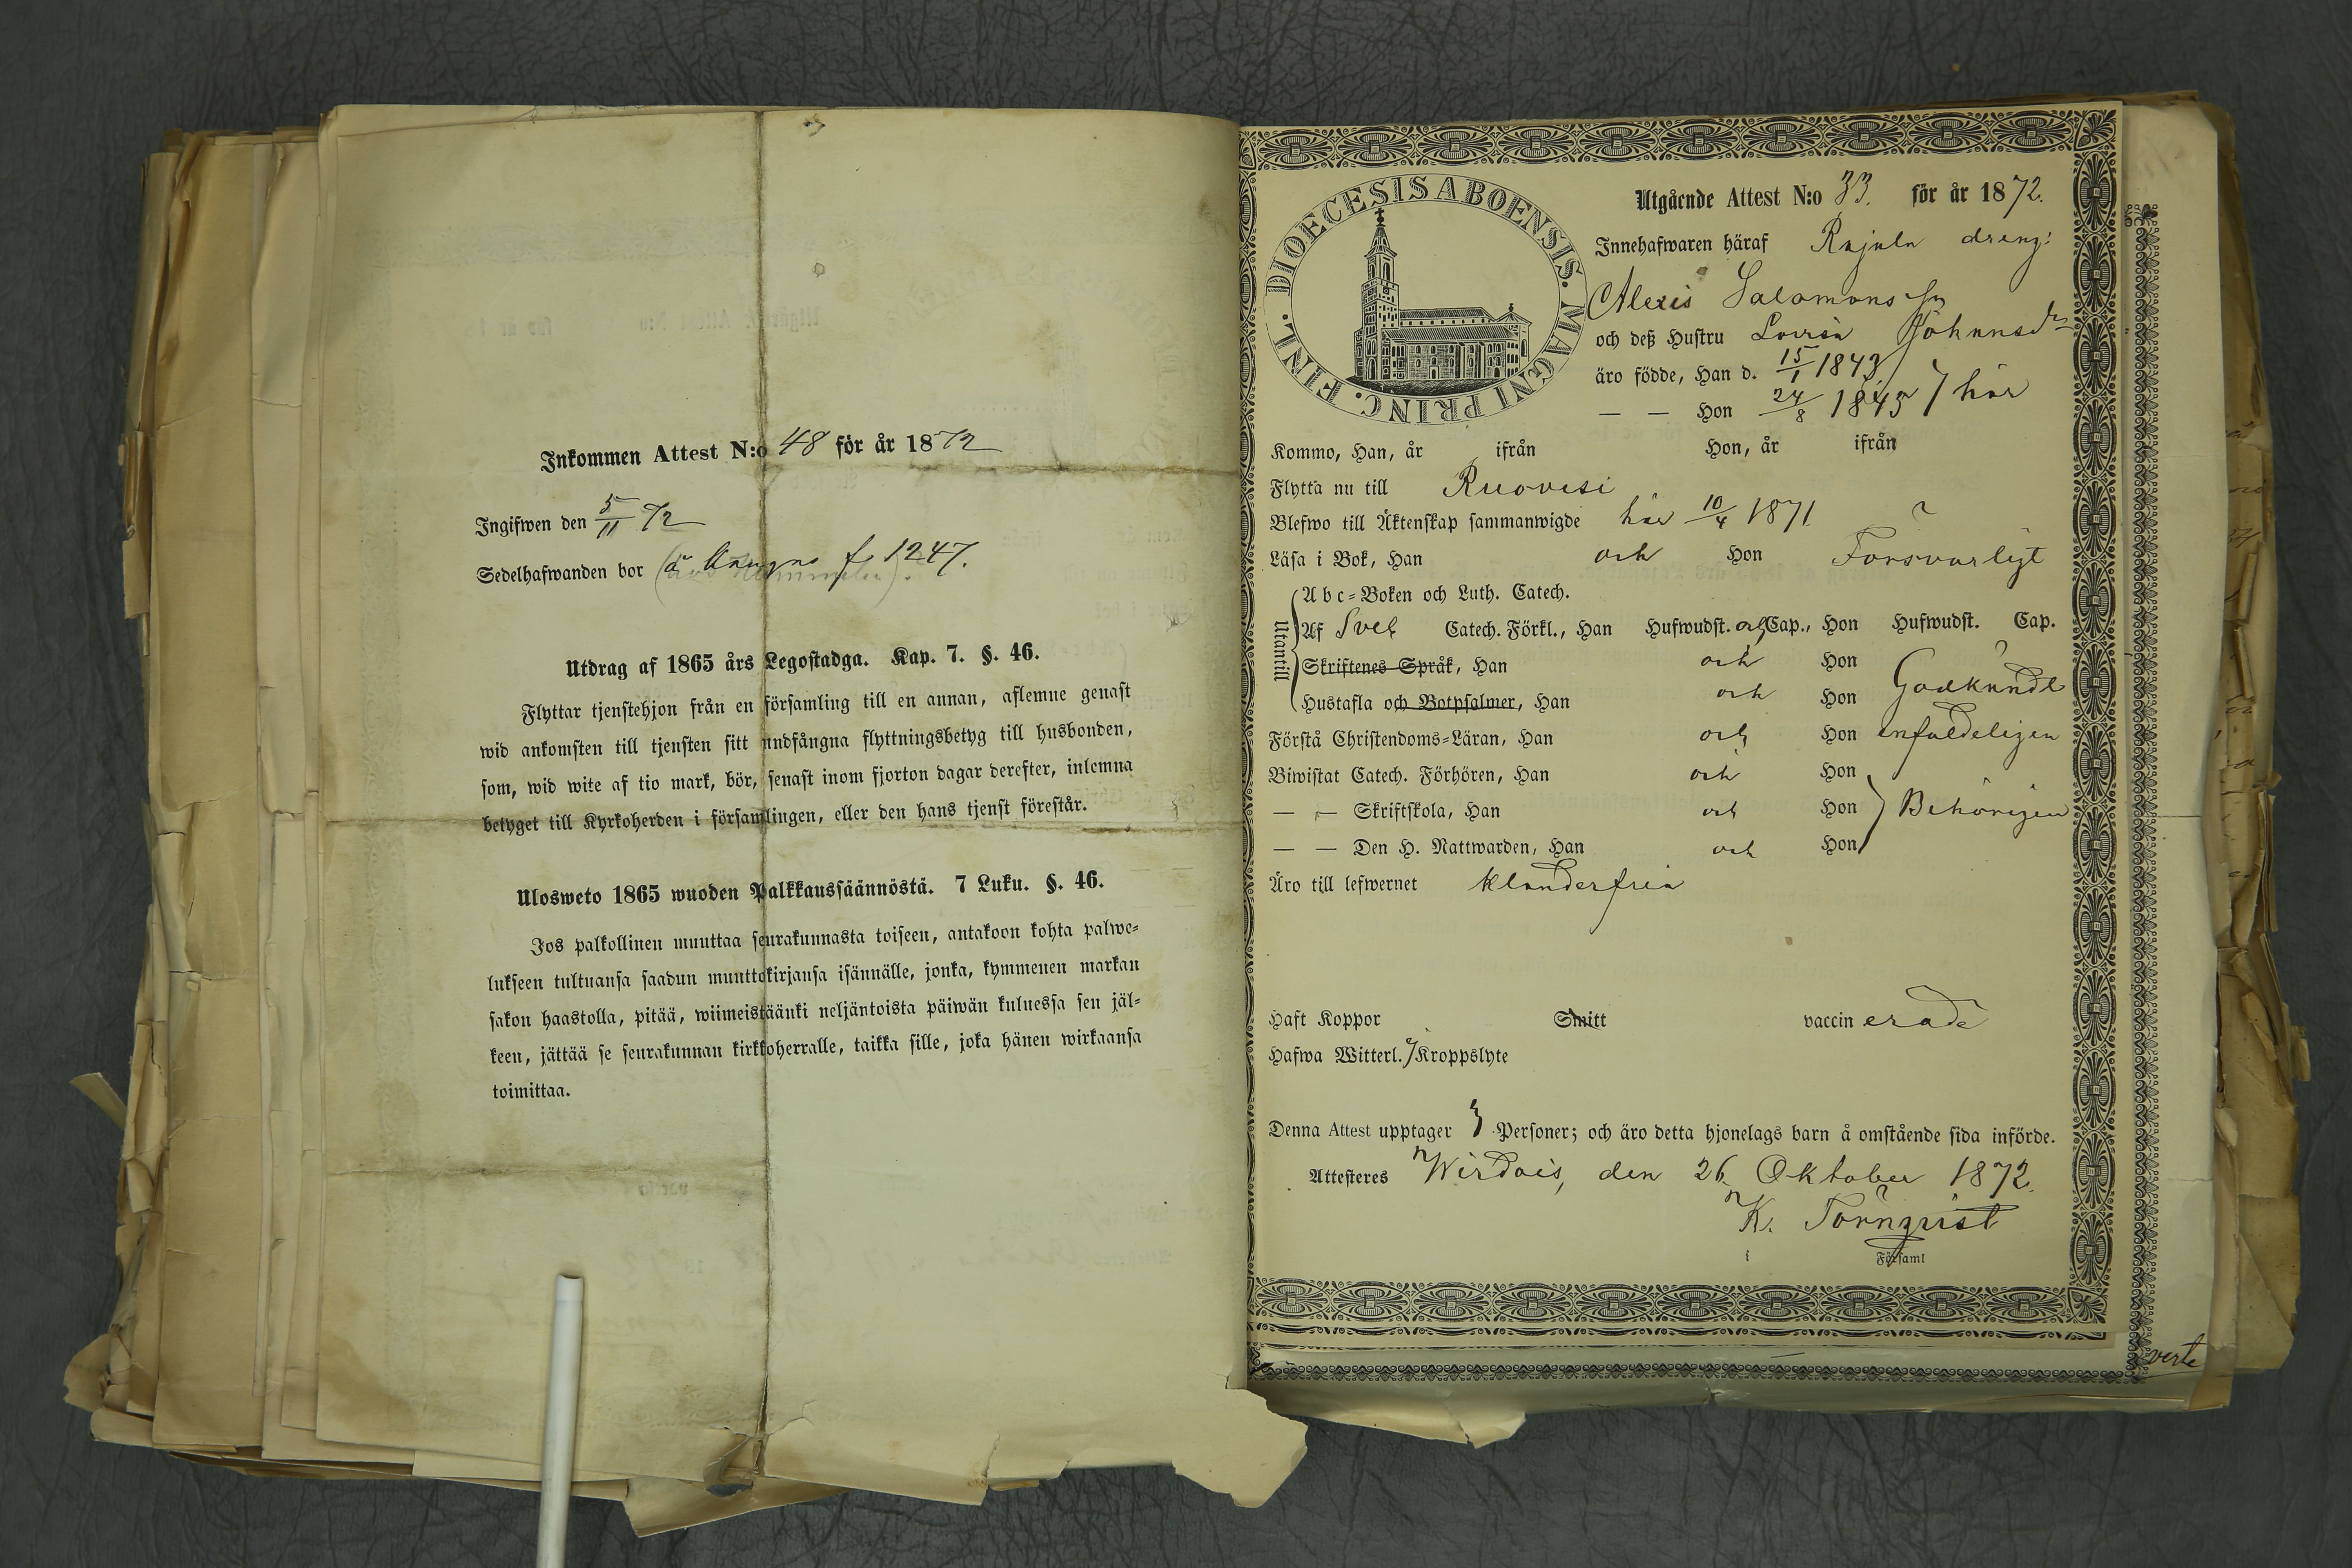 Inkommen Attest N:o 48 för år 1872
Ingifwen den 5/11 72
Sedelhafwanden bor f 1247.
Utdrag af 1865 års Legostadga. Kap. 7. §. 46.
Flyttar tjenstehjon från en församling till en annan, aflemne genast
wid ankomsten till tjensten sitt undfångna flyttningsbetyg till husbonden,
som, wid wite af tio mark, bör, senast inom fjorton dagar derefter, inlemna
betyget till Kyrkoherden i församlingen, eller den hans tjenst förestår.
Ulosweto 1865 wuoden Palkkaussäännöstä. 7 Luku. §. 46.
Jos palkollinen muuttaa seurakunnasta toiseen, antakoon kohta palwe-
lukseen tultuansa saadun muuttokirjansa isännälle, jonka, kymmenen markan
sakon haastolla, pitää, wiimeistäänki neljäntoista päiwän kuluessa sen jäl-
keen, jättää se seurakunnan kirkkoherralle, taikka sille, joka hänen wirkaansa
toimittaa.
DIOECESIS ABOENSIS. MAGNI PRINC. FINL.
Utgående Attest N:o 33. för år 1872.
Innehafwaren häraf Rajala dreng:
Alexis Salomonsson
och deß Hustru Lovisa Johansdr
äro födde, Han d. 15/1 1843
— — Hon 24/8 1845 } här
Kommo, Han, år ifrån Hon, år ifrån
Flytta nu till Ruovesi
Blefwo till Äktenskap sammanwigde här 10/4 1871
Läsa i Bok, Han och Hon Försvarligt
Utantill
Abc-Boken och Luth. Catech.
Af Sveb Catech. Förkl., Han Hufwudst. och Cap., Hon Hufwudst. Cap.
Skriftenes Språk, Han och Hon
Hustafla och Botpsalmer, Han och Hon Godkändt
Förstå Christendoms-Läran, Han och Hon enfaldeligen
Biwistat Catech. Förhören, Han och Hon
— — Skriftskola, Han och Hon Behörigen
— — Den H. Nattwarden, Han och Hon
Äro till lefwernet klanderfria
Haft Koppor Smitt vaccinerade
Hafwa Witterl. ej Kroppslyte
Denna Attest upptager 3 Personer; och äro detta hjonelags barn å omstående sida införde.
Attesteres Wirdois, den 26 Oktober 1872.
K. Törnqvist
i Församl
verte